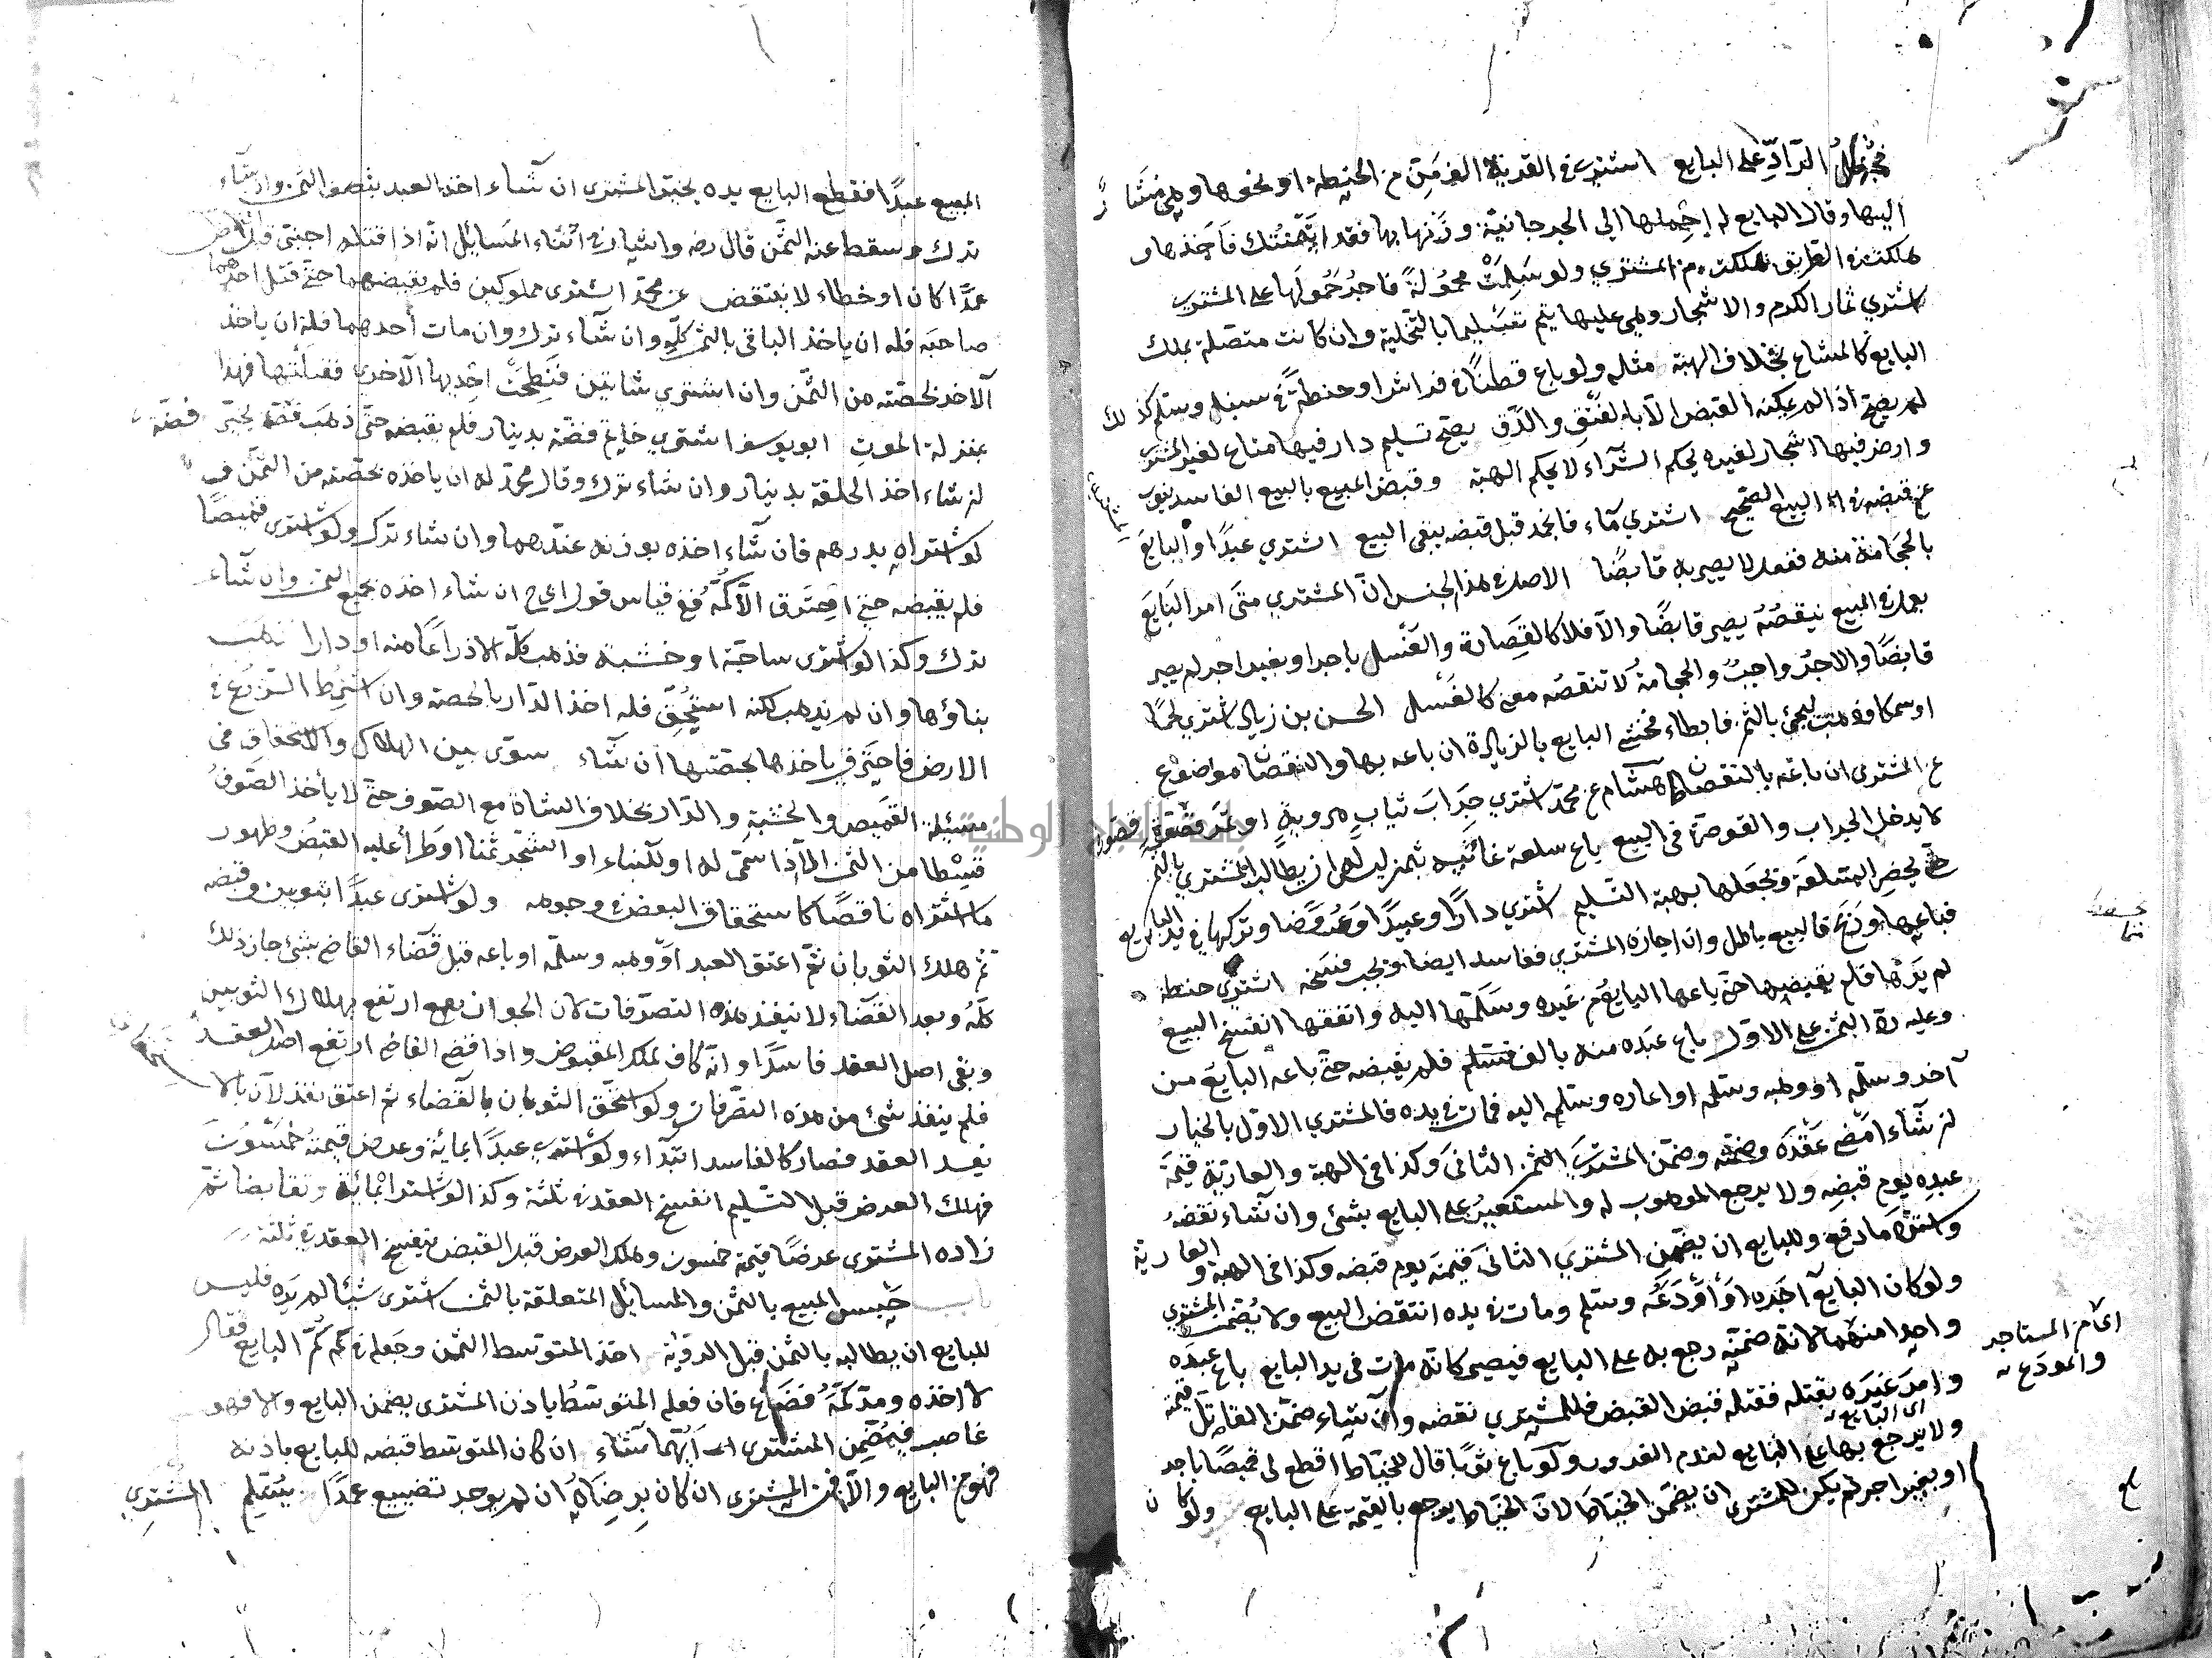 الرّادّ على البايع اشترى في القرية الف مَنٍّ من الحنطة او نحوها وهي مشا
اليها وقال البايع له احملها الي الجرجانية وزنها بها فقد ايتمنتك فاخذها و
هلكت في الطريق هلكت من المشتري ولو سَلِمَتْ محمولةً فاجرُ حُمُولها على المشتري
اشتري ثمار الكرم والاشجار وهي عليها يتم تسليمها بالتخلية وان كانت متصلة بملك
البايع كالمشاع بخلاف الهبة مثله ولو باع قطنًا في فراش او حنطةً في سنبله وسلّم كذلك
لم يصحّ اذا لم يمكنه القبض الا بالفَتْق والدَّق يصحّ تسليم دار فيها متاع لغير المشتري
وارض فيها اشجار لغيره بحكم الشّرآء لا بحكم الهبة وقبض المبيع بالبيع الفاسد ينوب
عن قبضه في البيع الصّحيح اشتري مآء فانجمد قبل قبضه يبقى البيع اشتري عبدًا وأمر البايع
بالحِجَامة منه ففعل لا يصير به قابضًا الاصل في هذا الجنس انّ المشتري متى امر البَايَع
بعمل في المبيع ينقصُهُ يصير قابضًا والّا فلا كالقِصَارة والغَسْل باجر او بغير اجر لم يصر
قابضًا والاجرُ واجبٌ والحجامةُ لا تنقصُه معنى كالغَسْل الحسن بن زياد اشتري لحمًا
او سمكا فذهب ليجئ بالثمن فابطاء فخشى البايع بالزيادة ان باعه بها والنقصان موضوع
عن المشترى ان باعه بالنقصان هشام عن محمّد اشترى جِرَابَ ثياب هروية او تمر قَوصَرّة
كما يدخل الجراب والقوصرّة في البيع باع سلعة غائبة بثمن ليس له ان يطالب المشتري بالثمن
حتى يحضر السلعة ويجعلها بهيئة التّسليم اشتري دارًا او عبيدًا او عُروضًا وتركها في يد البايع
فباعها ورَبِحَ فالبيع باطل وان اجازه المشتري ففاسد ايضا ويجب فسخه اشتري حنطة
لم يَرَها فلم يقبضها حتى باعها البايعُ من غيره وسَلّمها اليه وانفقها انفسخ البيع
وعليه ردّ الثمن على الاول باع عَبْده منه بالف فلم يقبضه حتى باعه البايع من
آخر وسلّمه او وهبه وسلّمه او اعاره وسلّمه اليه فمات في يده فالمشتري الاوّل بالخيار
ان شآء امضى عَقْدَه وضمّن المشترىَ الثانىَ وكذا في الهبة والعارية قيمةَ
عبدِهِ يوم قبضِهِ ولا يرجع الموهوب له والمستعيرُ على البايع بشئ وان شآء نقضَهُ
واستردّ ما دفع وللبايع ان يضمن المشتري الثانيَ قيمتَه يوم قبضه وكذا في الهبة والعارية
ولو كان البايع آجَره او أوْدَعَه وسلّم ومات في يده انتقض البيع ولا يُضَمِّنُ المشتري
واحدا منهما لانه ضمنه رجع به على البايع فيصير كانه مات في يد البايع باع عبدَه
وامَر غيرَه بقتله فقتله قبل القبض فللمشتري نقضه وان شآء ضمّن القاتل قيمته
ولا يرجع بها على البايع ولو باع ثوبًا قال للخيّاط اقطع لي قميصًا باجر
او بغير اجر لم يكن للمشتري ان يضمّن الخيّاطَ لانّ الخيّاط يرجع بالقيمة على البايع ولو كان
اى من المستاجر
والمودَع
اى البايع
بلغ
المبيع عبدًا فقطع البايع يده يخيّر المشترى ان شآء اخذ العبد بنصف الثمن وان شآء
ترك وسقط عنه الثّمن قال رضه واشار في أثناء المسائل انّه اذا قتله اجنبيّ قبل القبض
عمدًا كان او خطاء لا ينتقض عن محمّد اشترى مملوكين فلم يقبضهما حتّى قتل احدهما
صاحبَه فله ان ياخذ الباقى بالثمن كلّهِ وان شآء ترك وان مات أحدهما فله ان ياخذ
الآخر بحصّته من الثّمن وان اشتري شاتين فنَطِحَتْ احديها الآخرى فقتلتها فهذا
بمنزلة الموتِ ابو يوسف اشتري خاتم فضّة بدينار فلم يقبضه حتى ذهَبَ فصّه يخيّر
ان شاء اخذ الحلقة بدينار وان شاء ترك وقال محمّد له ان ياخذه بحصّته من الثّمن
لو اشتراه بدرهم فان شآء اخذه بوزنه عندهما وان شاء ترك ولو اشترى قميصًا
فلم يقبضه حتى احترق الّا كُمَّه ففى قياس قول ابى ح ان شاء اخذه بجميع الثمن وان شآء
ترك وكذا لو اشترى ساحَةً او خشبة فذهب كلّه الا ذراعًا منه او دارا ذهب
بناؤها وان لم يذهب لكنه استُحِقّ فله اخذ الدّار بالحصة وان اشترط الزرعُ في
الارض فاحترق ياخذها بحصّتها ان شآء سوّى بين الهلاك والاستحقاق في
مسئلة القميص والخشبةِ والدّار بخلاف الشاة مع الصّوف حتّى لا يأخذ الصّوفُ
قِسْطا من الثمن الّا اذا سمّى له او للبناء او الشجر ثمنا او طرأ عليه القبضُ وظهور
ما اشتراه ناقصًا كاستحقاق البعض في وجوهه ولو اشترى عبدًا بثوبين وقبضه
ثم هلك الثوبان ثمّ اعتق العبد او وهبه وسلّمه او باعه قبل قضاء القاضى بشئ جاز ذلك
كلّهُ وبعد القضَاء لا ينفذ هذه التصرّفات لان الجواز بيع ارتفع بهلاك الثوبين
وبقى اصل العقد فاسدًا وانّه كافٍ لملك المقبوض واذا قضى القاضى ارتفع اصل العقد
فلم ينفذ شئ من هذه التصرّفات ولو استحقّ الثوبان بالقضاء ثم اعتق نفذ لانّ بالا
يفسد العقد فصار كالفاسد ابتداء ولو اشترى عبدًا بمائة وعرض قيمتهُ خمسُونَ
فهلك العرض قبل التسليم انفسخ العقد في ثلثة وكذا لو اشتراه بمائة وتقابضا ثمّ
زاده المشترى عرضًا قيمته خمسون وهلك العرض قبل القبض ينفسخ العقد في ثلثة
باب حَبس المبيع بالثّمن والمسائل المتعلقة بالثمن اشترى شيئا لم يَره فليس
للبايع ان يطالبه بالثّمن قبل الرؤية اخذ المتوسّط الثّمن وجَعله في كُمّ البايع فقال
لا اخذه ومدّ كُمَّهُ فضَاع فان فعله المتوسّطُ باذن المشترى يضمن البايع والا فهو
غاصب فيُضَمِّن المشترى ايّهما شآء ان كان المتوسّط قبضه للبايع باذنه
فهو من البايع والّا فمن المشترى ان كان برضاه ان لم يوجد تضييع عمدًا يُسَلّم المشتري